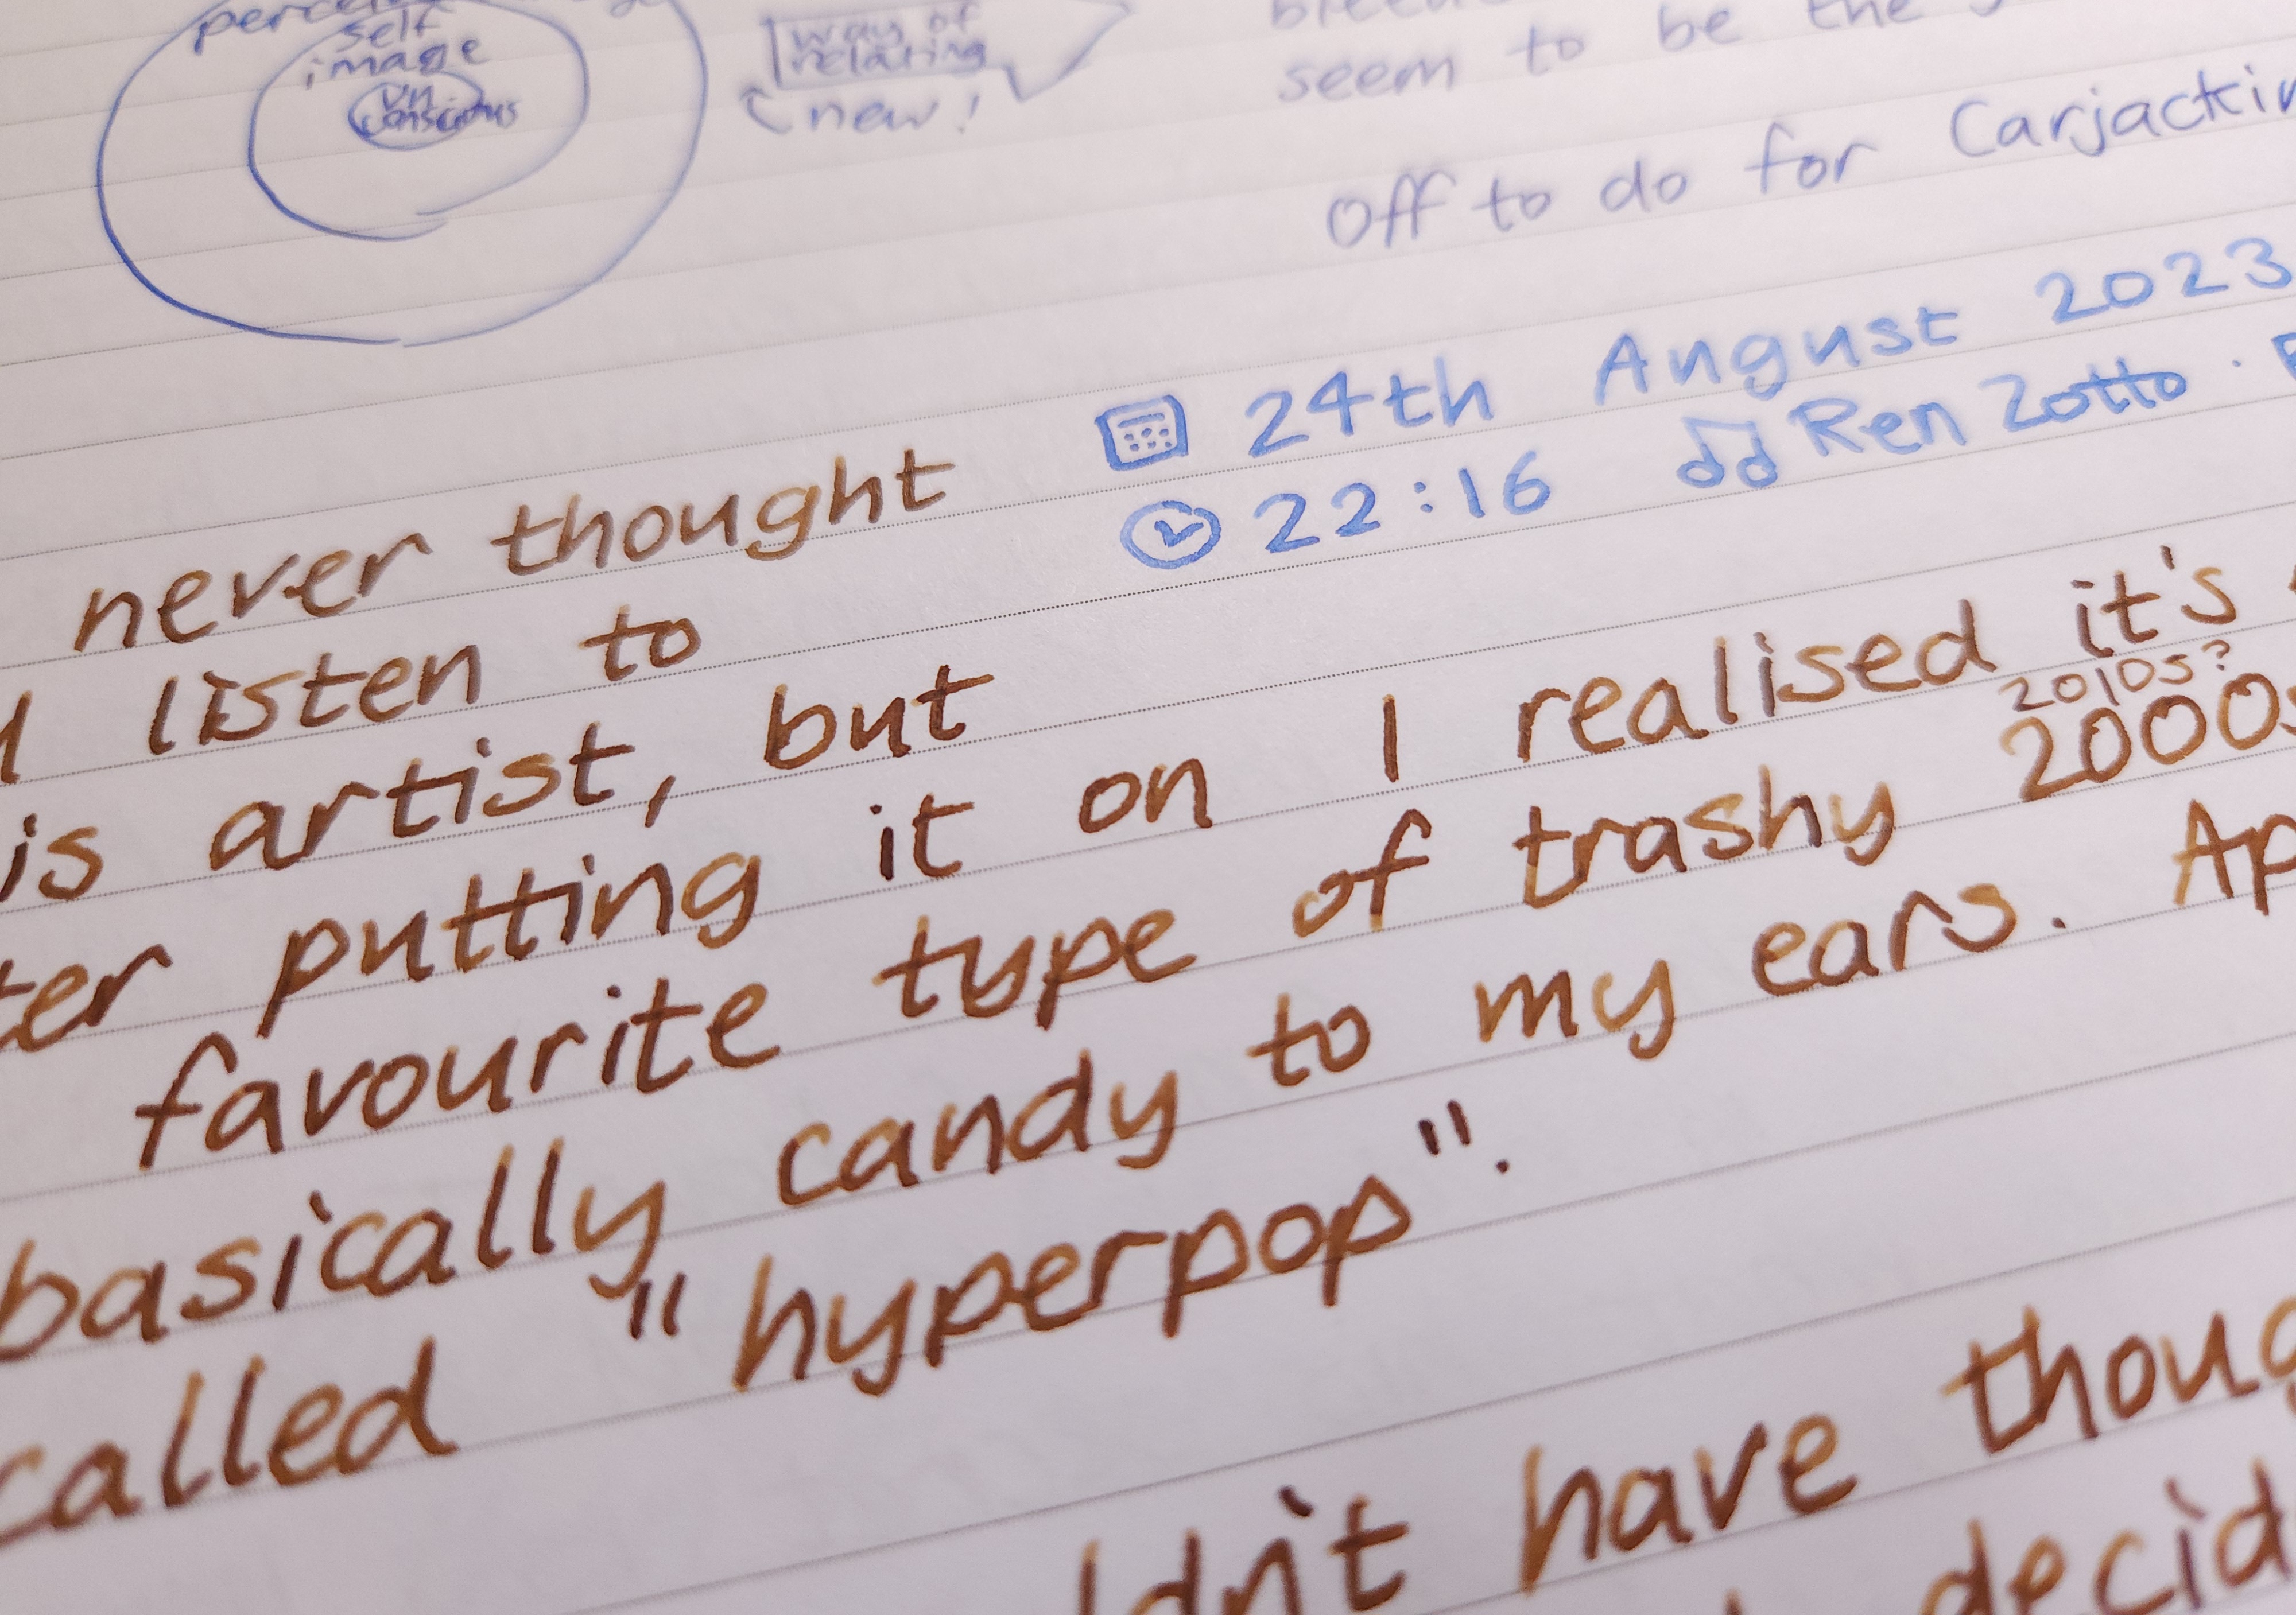 self
image
un
conscious
way of
relating
new!
seem to be the
Off to do for Carjackin
24th August 2023
22:16 Ren Zotto ·
never thought
listen to
is artist, but
ter putting it on I realised it's
2010s?
favourite type of trashy 2000s
basically candy to my ears. Ap
called "hyperpop".
ldn't have thoug
decid